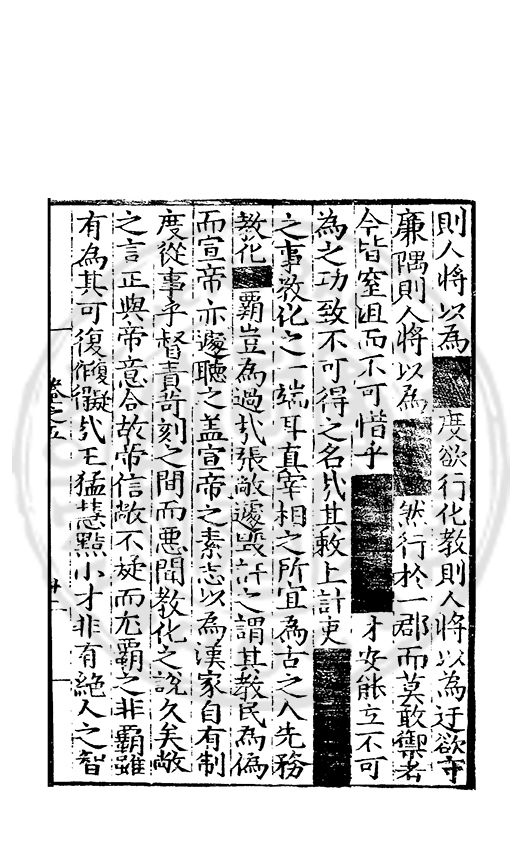 則人將以為度欲行化教則人將以為迂欲守
廉隅則人將以為然行於一郡而莫敢禦者
今皆窒沮而不可惜乎才安能立不可
為之功致不可得之名㢤其敕上計吏
之事教化之一端耳真宰相之所宜為古之人先務
教化霸豈為過㢤張敞遽毀訐之謂其教民為偽
而宣帝亦遽聽之盖宣帝之素志以為漢家自有制
度從事乎督責苛刻之間而悪聞教化之說久矣敞
之言正與帝意合故帝信敞不疑而尤霸之非霸雖
有為其可復復疑作得㢤王猛慧黠小才非有絶人之智
卷之五